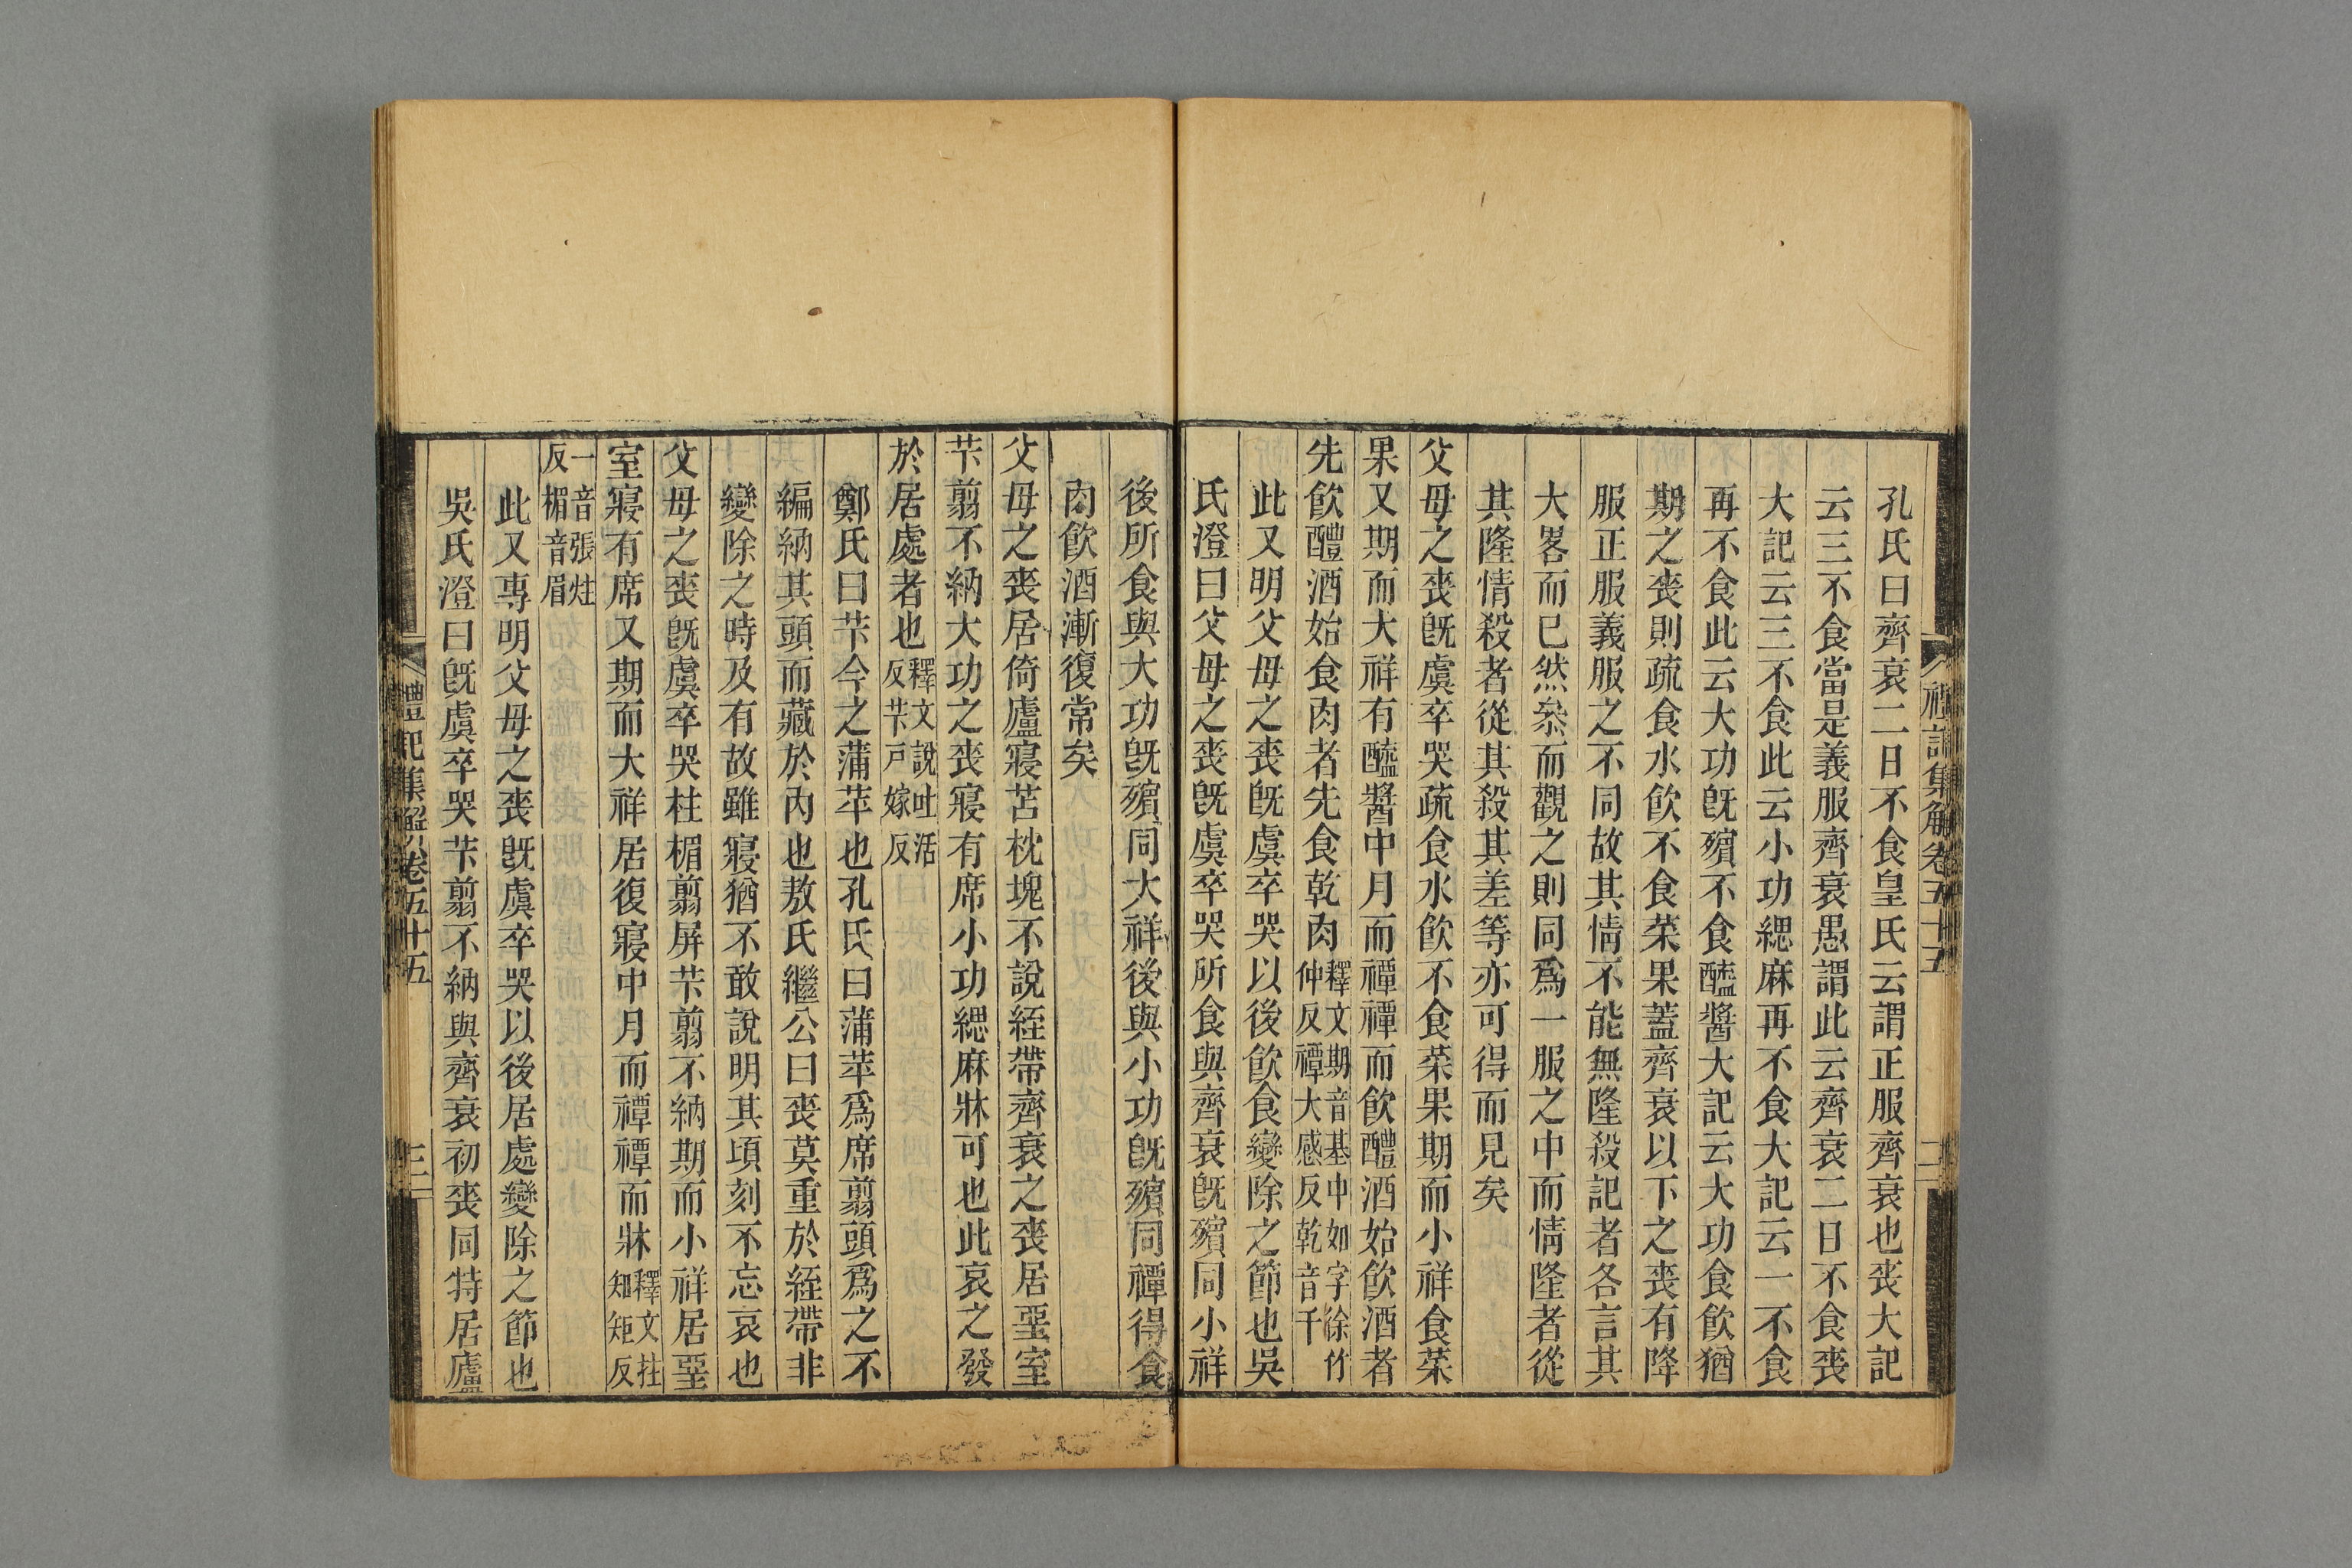 禮記集解卷五十五
二
孔氏曰齊衰二日不食皇氏云謂正服齊衰也喪大記
云三不食當是義服齊衰愚謂此云齊衰二日不食喪
大記云三不食此云小功緦麻再不食大記云一不食
再不食此云大功旣殯不食醯醬大記云大功食飲猶
期之喪則疏食水飲不食菜果蓋齊衰以下之喪有降
服正服義服之不同故其情不能無隆殺記者各言其
大畧而已然叅而觀之則同爲一服之中而情隆者從
其隆情殺者從其殺其差等亦可得而見矣
父母之喪旣虞卒哭疏食水飲不食菜果期而小祥食菜
果又期而大祥有醯醬中月而禫禫而飲醴酒始飲酒者
先飲醴酒始食肉者先食乾肉釋文期音基中如字徐竹仲反禫大感反乾音千
此又明父母之喪旣虞卒哭以後飲食變除之節也吳
氏澄曰父母之喪旣虞卒哭所食與齊衰旣殯同小祥
後所食與大功旣殯同大祥後與小功旣殯同禫得食
肉飲酒漸復常矣
父母之喪居倚廬寢苫枕塊不說絰帶齊衰之喪居堊室
芐翦不納大功之喪寢有席小功緦麻牀可也此哀之發
於居處者也釋文說吐活反芐戸嫁反
鄭氏曰芐今之蒲苹也孔氏曰蒲苹爲席翦頭爲之不
編納其頭而藏於內也敖氏繼公曰喪莫重於絰帶非
變除之時及有故雖寢猶不敢說明其頃刻不忘哀也
父母之喪旣虞卒哭柱楣翦屏芐翦不納期而小祥居堊
室寢有席又期而大祥居復寢中月而禫禫而牀釋文拄知矩反
一音張炷反楣音眉
此又專明父母之喪旣虞卒哭以後居處變除之節也
吳氏澄曰旣虞卒哭芐翦不納與齊衰初喪同特居廬
禮記集解卷五十五
三